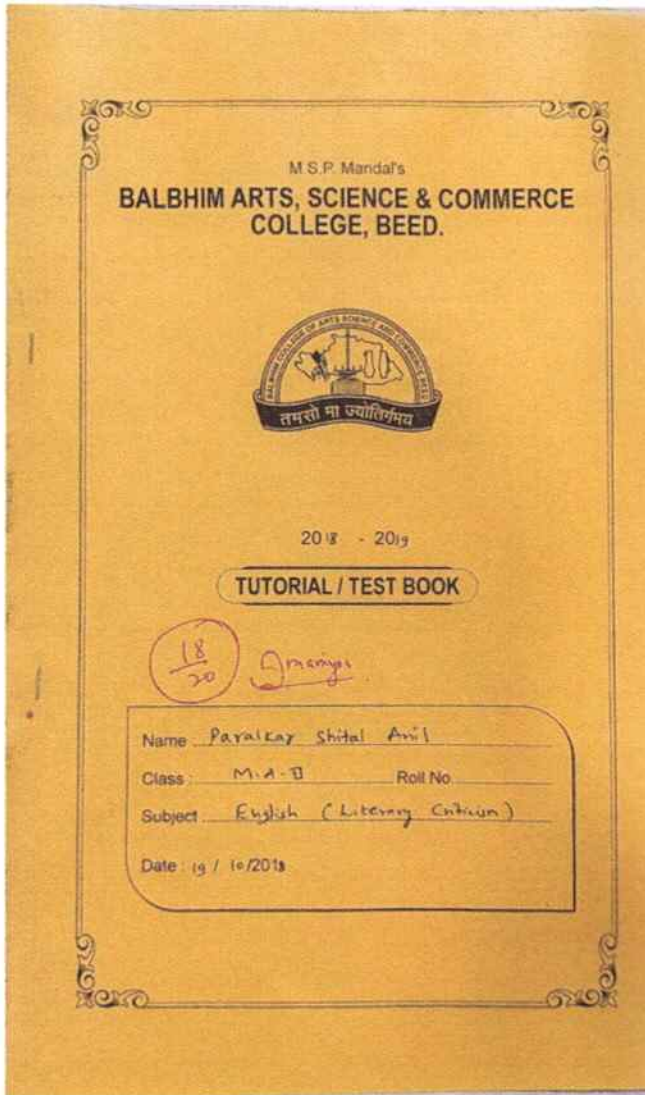 M.S.P. Mandal's
BALBHIM ARTS, SCIENCE & COMMERCE
COLLEGE, BEED.
BALBHIM COLLEGE OF ARTS SCIENCE AND COMMERCE BEED
तमसो मा ज्योतिर्गमय
2018 - 2019
TUTORIAL / TEST BOOK
18
20
Name Paralkar Shital Anil
Class : M.A-II Roll No
Subject English (Literary Criticism)
Date : 19 / 10/2018